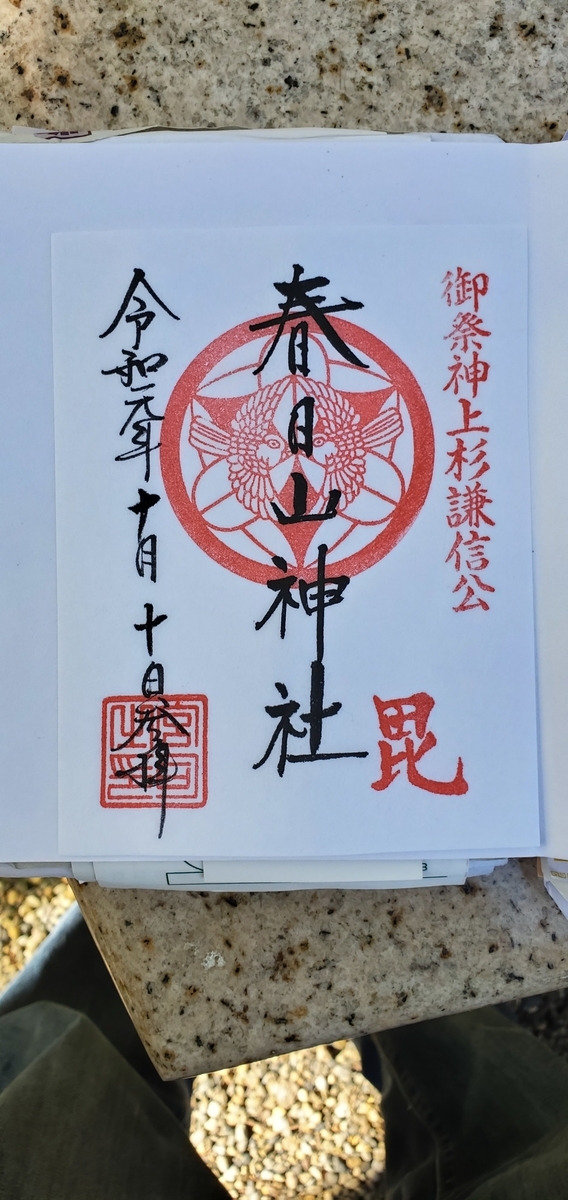 御祭神上杉謙信公
毘
春日山神社
令和元年十月十日参拝